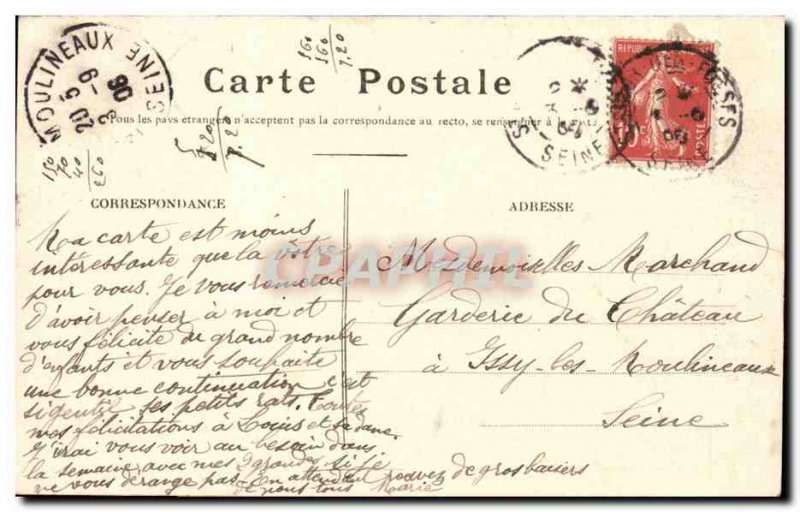 MOULINEAUX
SEINE
20 5-9 06
160
160
7.20
Carte Postale
REPUBLIQUE
SEINE
Tous les pays étrangers n'acceptent pas la correspondance au recto, se renseigner à la
7.20
150
70
40
260
CORRESPONDANCE
ADRESSE
Ma carte est moins
intéressante que la vôtre
pour vous. Je vous remercie
d'avoir penser à moi et
vous félicite du grand nombre
d'enfants et vous souhaite
une bonne continuation c'est
si gentil ses petits rats. Toutes
mes félicitations à Louis et sa dame.
J'irai vous voir au besoin dans
la semaine avec mes 2 grandes si je
ne vous dérange pas. En attendant recevez de gros baisers
de nous tous Marie
Mesdemoiselles Marchand
Garderie du Château
à Issy-les-Moulineaux
Seine
CPAPHIL